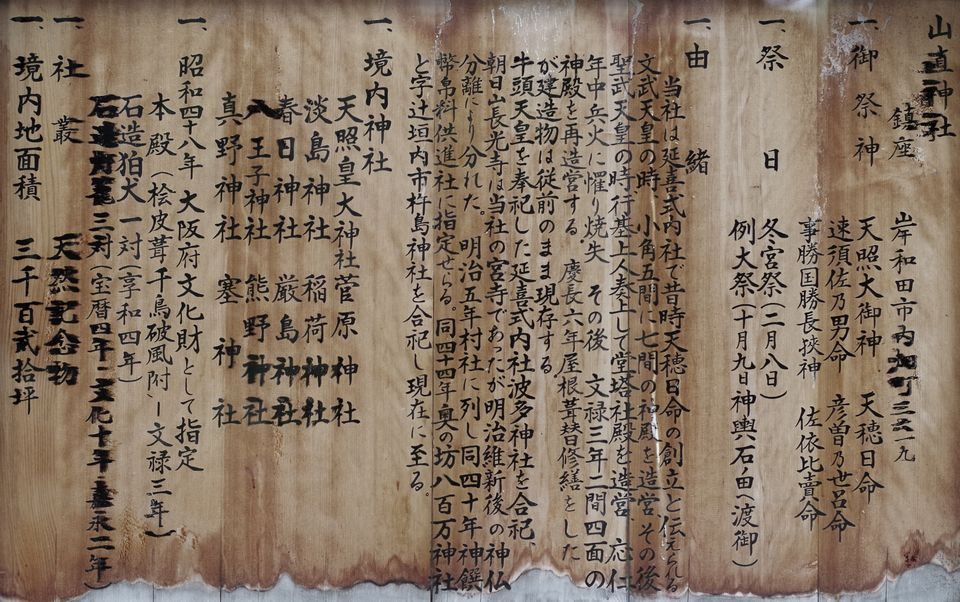 山直神社
鎮座 岸和田市内畑町三六一九
一、御祭神 天照大御神 天穂日命
速須佐乃男命 彦曽乃世呂命
事勝国勝長狭神 佐依比賣命
一、祭日 冬宮祭(二月八日)
例大祭(十月九日神輿石ノ由(渡御)
一、由緒
当社は延喜式内社で昔時天穂日命の創立と伝えらる
文武天皇の時、小角五間に七間の神殿を造営その後
聖武天皇の時行基上人奏上して堂塔社殿を造営、応仁
年中兵火に罹り焼失、その後 文禄三年二間四面の
神殿を再造営する、慶長六年屋根葺替修繕をした
が建造物は従前のまま現存する
牛頭天皇を奉祀した延喜式内社波多神社を合祀、
朝日山長光寺は当社の宮寺であったが明治維新後の神仏
分離により分れた。明治五年村社に列し同四十年神饌
幣帛料供進社に指定せらる。同四十四年奥の坊八百万神社
と字辻垣内市杵島神社を合祀し現在に至る。
一、境内神社
天照皇大神社 菅原神社
淡島神社 稲荷神社
春日神社 厳島神社
八王子神社 熊野神社
真野神社 塞神社
一、昭和四十八年 大阪府文化財として指定
本殿(桧皮葺千鳥破風附)ー文禄三年)
石造狛犬一対(享和四年)
石造灯籠三対(宝暦四年・文化十年・嘉永二年)
一、社叢 天然記念物
一、境内地面積 三千百弐拾坪